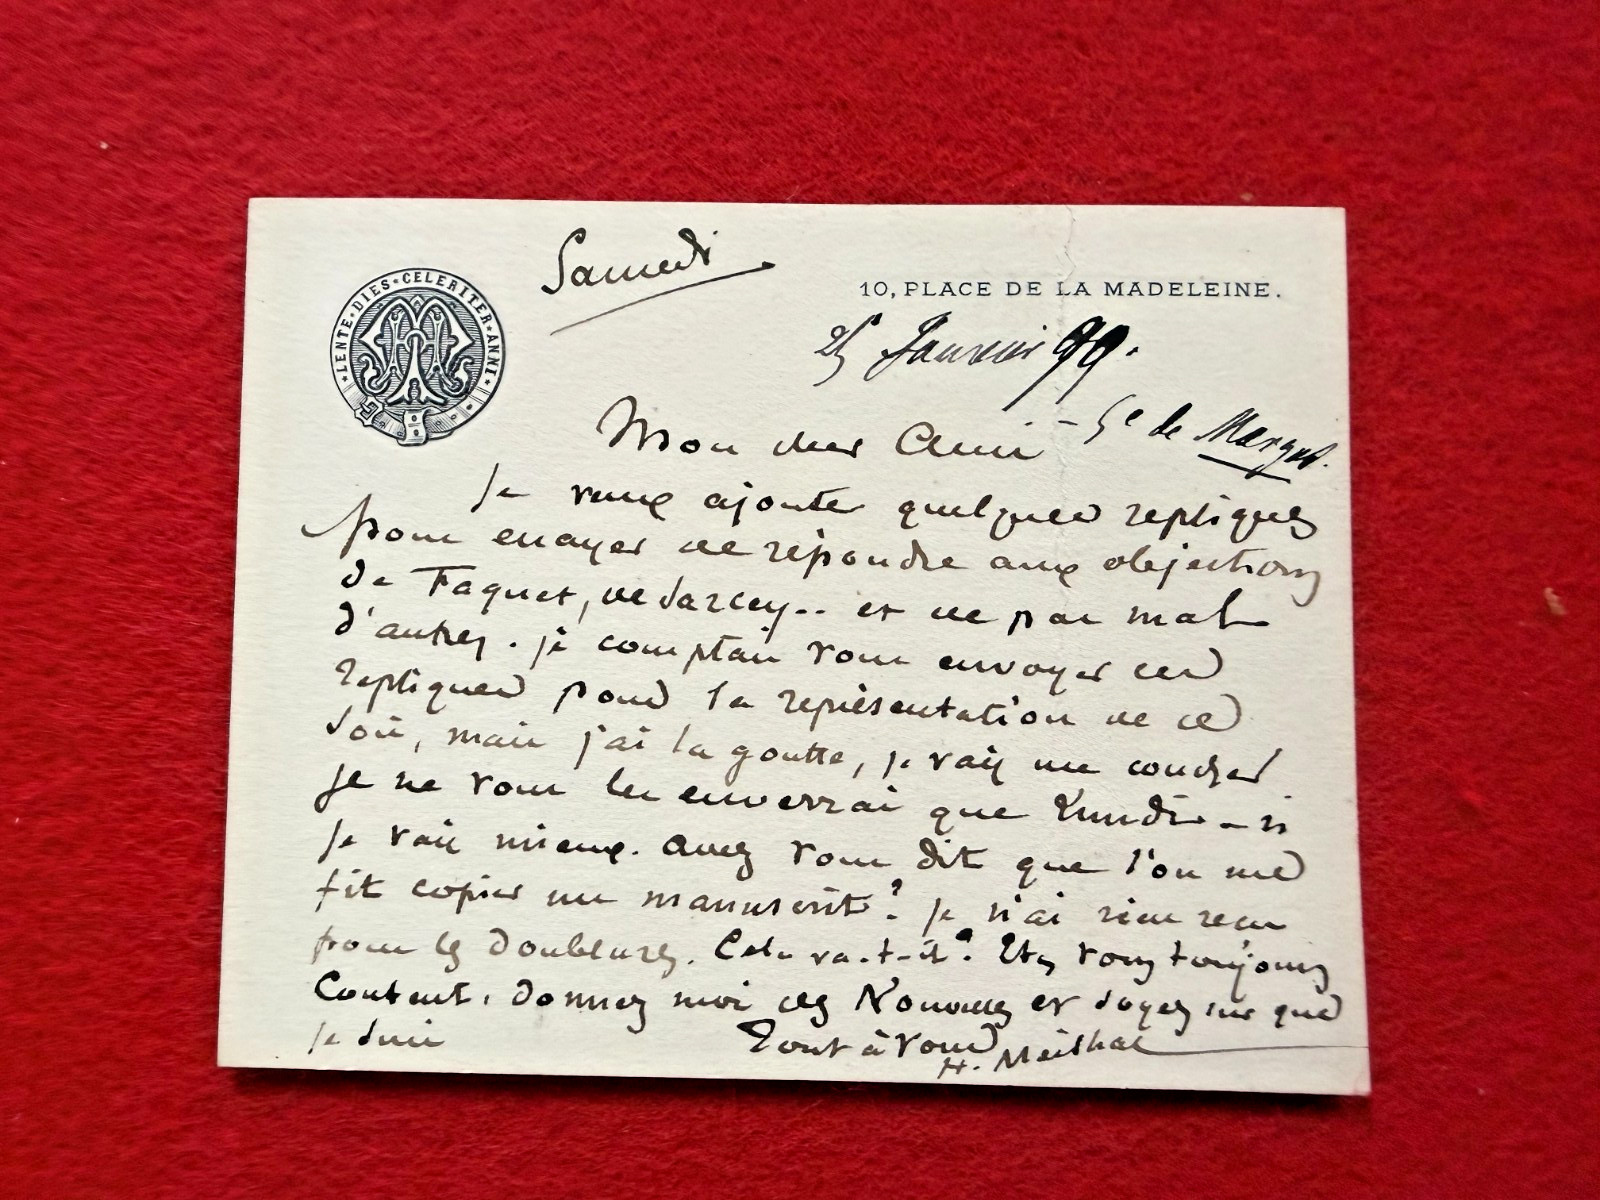 Samedi
LENTE · DIES · CELERITER · ANNI
10, PLACE DE LA MADELEINE.
25 Janvier 99.
Mon cher Ami - 5e de Margot.
Je veux ajouter quelques repliques
pour essayer de répondre aux objections
de Faguet, de Sarcey.. et de pas mal
d'autres. je comptais vous envoyer ces
repliques pour la représentation de ce
soir, mais j'ai la goutte, je vais me coucher
je ne vous les enverrai que Lundi - si
je vais mieux. avez vous dit que l'on me
fit copier un manuscrit? je n'ai rien reçu
pour les doublures. Cela va-t-il? Etes vous toujours
Content. donnez moi des Nouvelles et soyez sur que
je suis Tout à vous
H. Meilhac